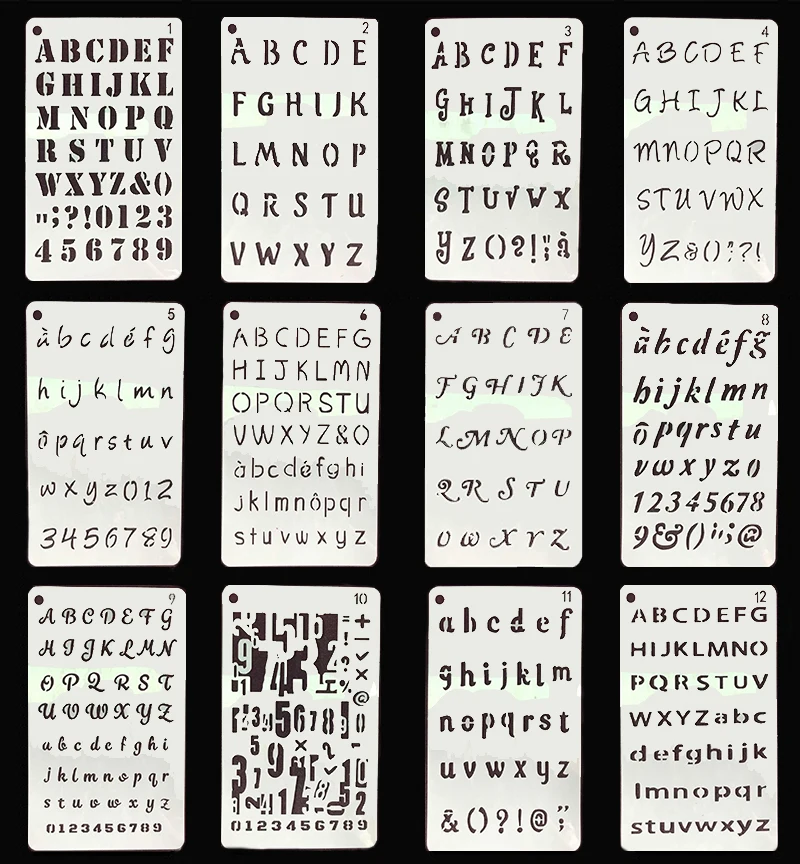 1
ABCDEF
GHIJKL
MNOPQ
RSTUV
WXYZ&()
";?!0123
456789
2
ABCDE
FGHIJK
LMNOP
QRSTU
VWXYZ
3
ABCDEF
GHIJKL
MNOPQR
STUVWX
YZ()?!";à
4
ABCDEF
GHIJKL
MNOPQR
STUVWX
YZ&():?!
5
àbcdéfg
hijklmn
ôpqrstuv
wxyz012
3456789
6
ABCDEFG
HIJKLMN
OPQRSTU
VWXYZ&()
àbcdéfghi
jklmnôpqr
stuvwxyz
7
ABCDE
FGHIJK
LMNOP
QRSTU
VWXYZ
8
àbcdéfg̃
hijklmn
ôpqrstu
vwxyz()
12345678
9&()!";@
9
ABCDEFG
HIJKLMN
OPQRST
UVWXYZ
abcdefghi
jklmnopqr
stuvwxyz
0123456789
10
0123456789
11
abcdef
ghijklm
nopqrst
uvwxyz
&()?!@";
12
ABCDEFG
HIJKLMNO
PQRSTUV
WXYZabc
defghijk
lmnopqr
stuvwxyz